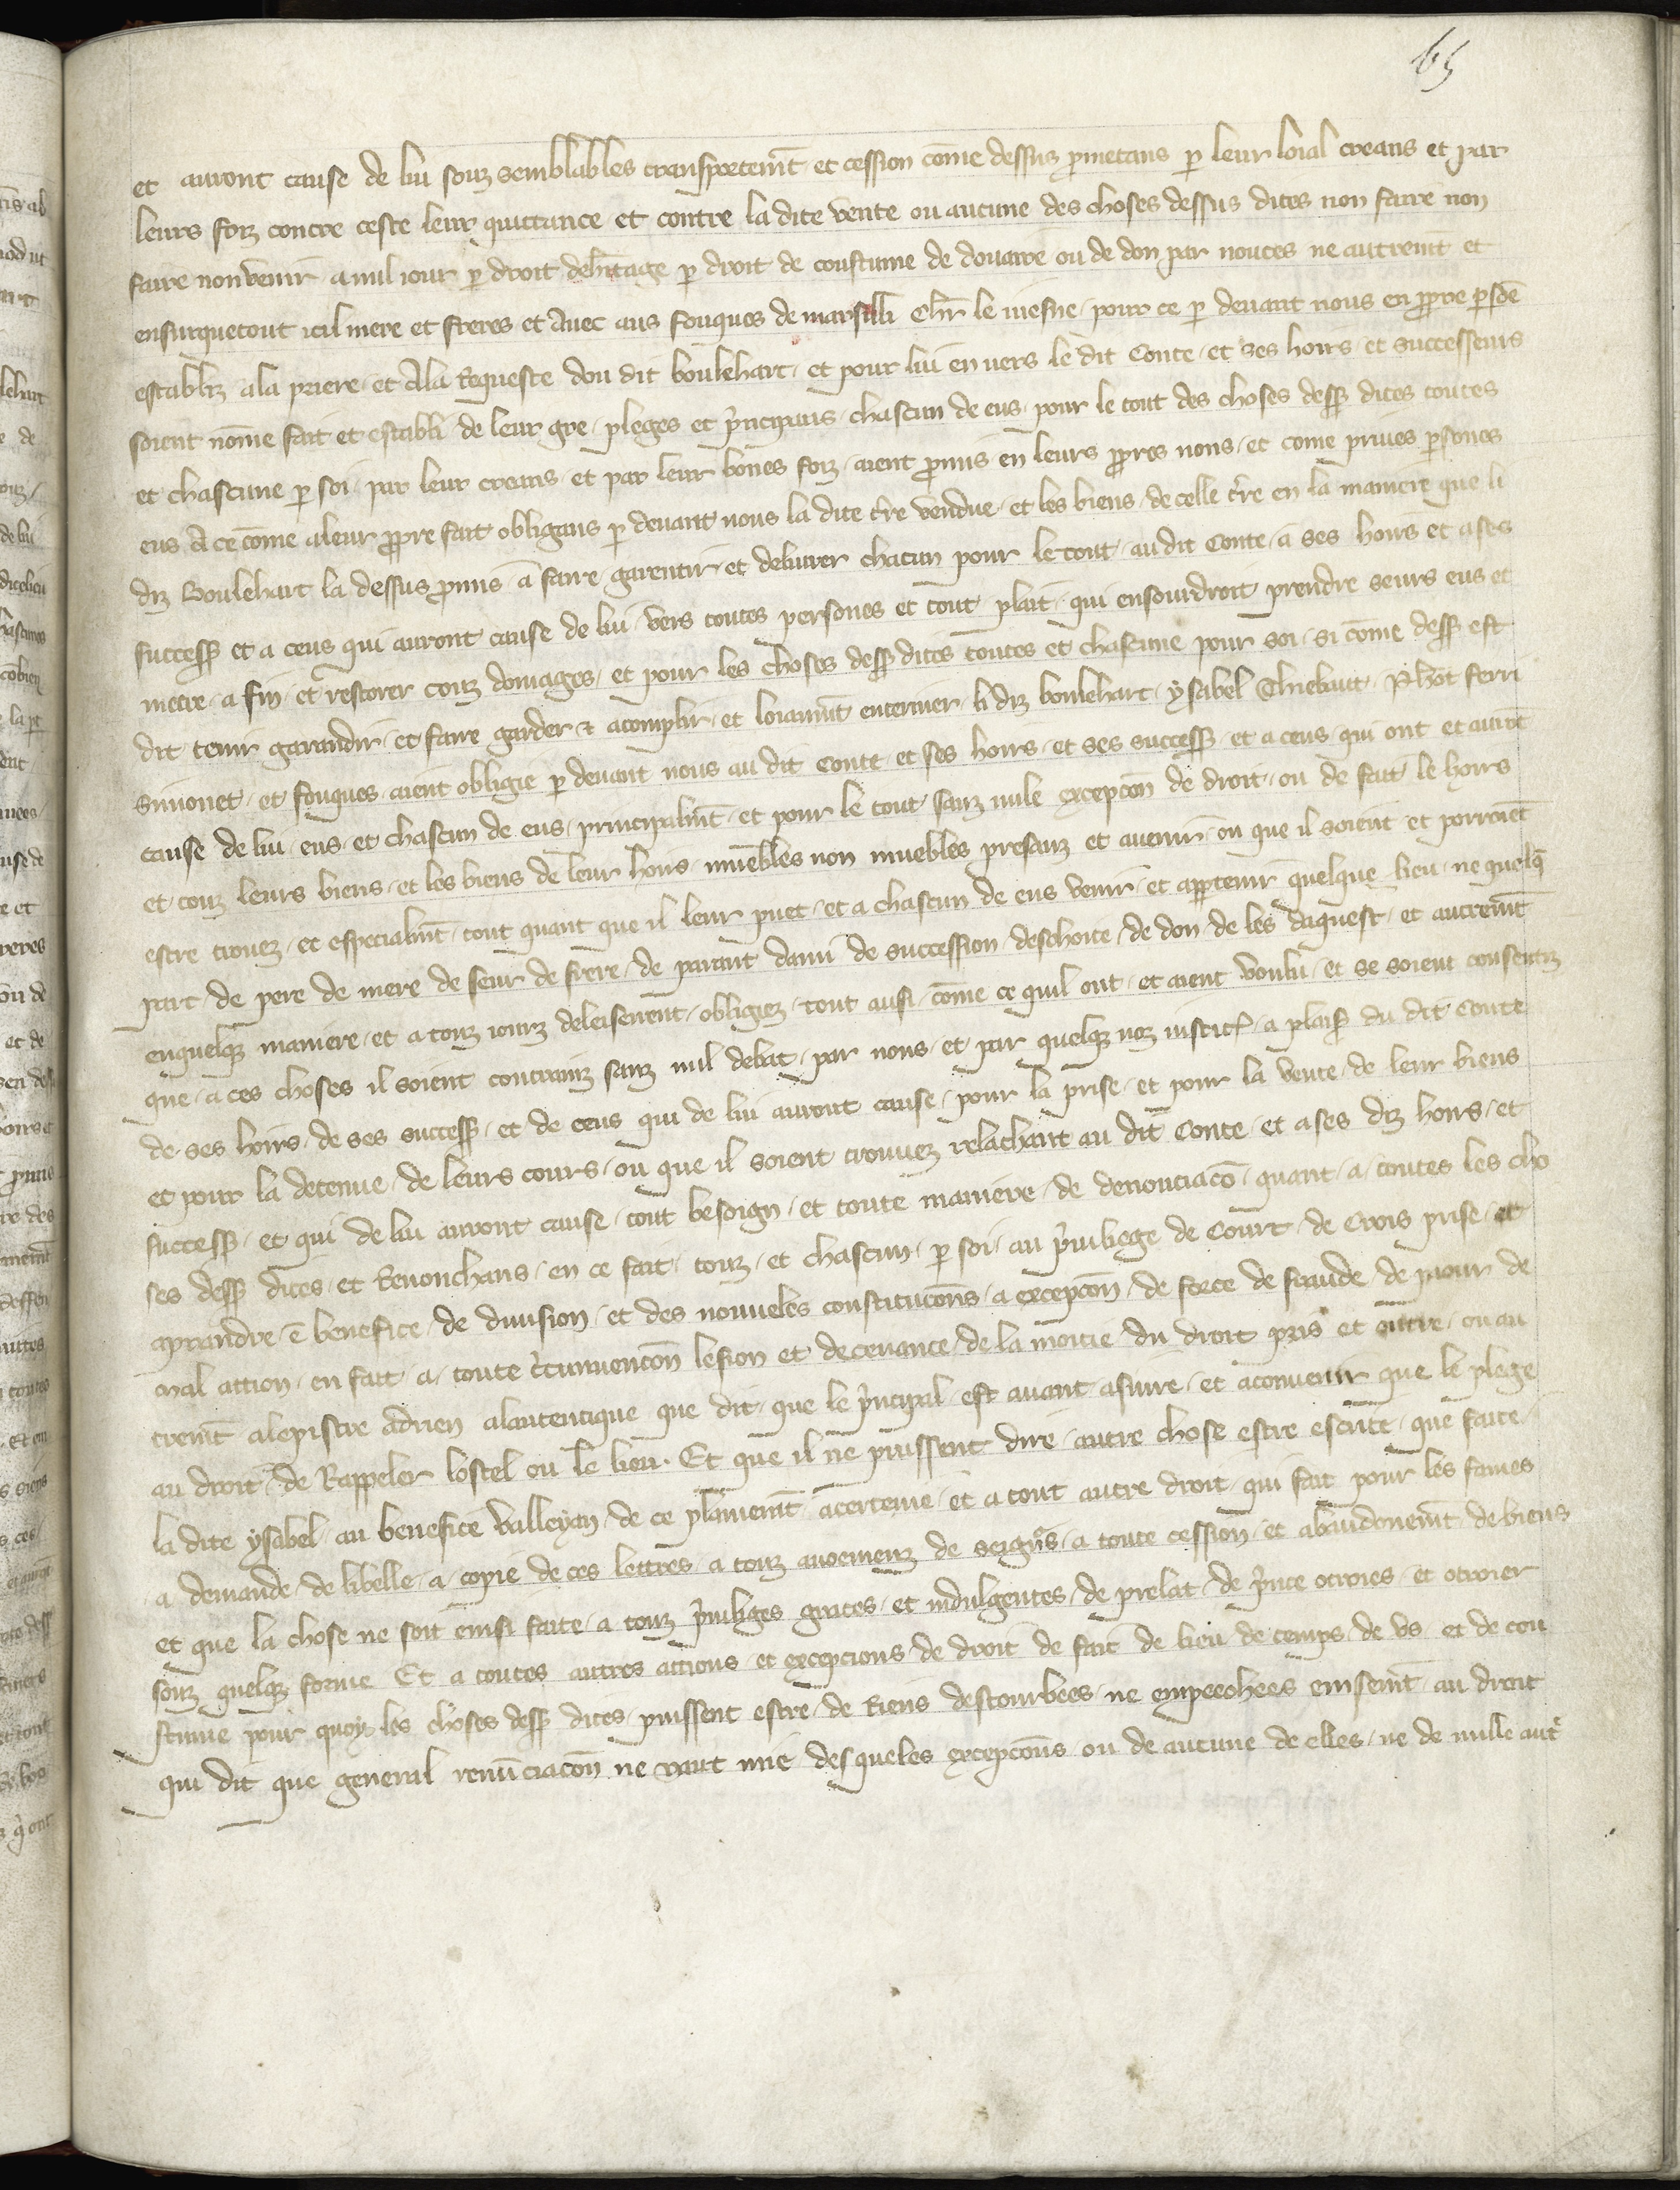 65
et auront cause de lui souz semblables transportemt et cession cōme dessus pmetans p leur loial creans et par
leurs foiz contre ceste leur quittance et contre la dite vente ou aucune des choses dessus dites non faire non
faire non venir a nul iour p droit deh̄itage p droit de coustume de douaire ou de don par nouces ne autremt et
ensurquetout icil mere et freres et Avec aus fouques de marsilli Chr̄ le mesne / pour ce p deuant nous en ppre psōē
establiz ala priere / et Ala Requeste dou dit boulehart / et pour lui en uers le dit Conte / et ses hoirs / et successeurs
soient nōme fait et establi de leur gre / pleges et pncipaus / chascun de eus / pour le tout des choses dessꝰ dites toutes
et chascune p soi / par leur creans / et par leur bones foiz / aient pmis en leurs ppres nons / et come priues psones
eus A ce cōme aleur ppre fait obligans p deuant nous la dite tr̄re vendue / et les biens / de celle tr̄re en la maniere que li
diz Boulehart la dessus pmis a faire garentir / et deliurer chacun pour le tout / au dit Conte / a ses hoirs et a ses
successꝰ et a ceus qui auront cause de lui / vers toutes persones et tout plait / qui ensourdroit prendre seurs eus et
metre / a fin / et restorer touz domages / et pour les choses dessꝰ dites toutes et chascune pour soi / si cōme dessꝰ est
dit tenir garandir / et faire garder & acomplir / et loiaumt enteriner / li diz boulehart / ysabel Thiebaut / Ph̄ot ferri
Simonet / et fouques / aient obligie p deuant nous au dit Conte / et ses hoirs / et ses successꝰ / et a ceus / qui ont et aurōt
cause de lui / eus / et chascun de eus / principalmt / et pour le tout sanz nule excepcōn de droit / ou de fait le hoirs
et touz leurs biens / et les biens de leur hoirs muebles non muebles presanz et auenir / ou que il soient et porroiēt
estre trouez / et especialmt / tout quant que il leur puet / et a chascun de eus venir / et apptenir quelque lieu / ne quelq̄
part / de pere de mere de seur de frere / de parant dami de succession / deschoite / de don / de les daquest / et autremt
enquelqꝫ maniere / et a touz iourz deleissent / obligiez / tout ausi / cōme ce quil ont / et aient voulu / et se soient consentiz
que / a ces choses il soient contrainz sanz nul debat / par nous / et par quelqꝫ noz iustic̄ / a plaisꝰ du dit Conte
de ses hoirs / de ses successꝰ / et de ceus qui de lui auront cause / pour la prise / et pour la vente / de leur biens
et pour la detenue / de leurs cours / ou que il soient trouuez relachant au dit Conte / et a ses diz hoirs / et
successꝰ / et qui de lui auront cause / tout besoign / et toute maniere / de denonciacō / quant / a / toutes les cho
ses dessꝰ dites / et Renonchans / en ce fait / touz / et chascun / p soi / au pruilege de Court / de Crois prise / et
aprandre / ē benefice / de diuision / et des nouueles constitucōns / a excepcōn / de force de fraude / de paour de
mal attion / en fait / a / toute cͥcunuencōn lesion et deceuance / de la moitie / du droit pris et outre / ou au
tremt alepistre adrien alautentique que dit / que le pncipal est auant asuire / et aconuenir que le plege
au droit / de Rappeler lostel ou le lieu . Et que il ne puissent dire / autre chose estre escrite / que faite /
la dite ysabel / au benefice valleyan / de ce plainemt acertenee / et a tout autre droit / qui fait pour les fames
a demande / de libelle / a / copie de ces lettres / a touz auoemenz de seignrs / a toute cession / et abandonemt de biens
et que la chose ne soit einsi faite / a touz pruileges graces / et indulgentes / de prelat / de pnce otroies / et otroier
souz quelqꝫ forme Et a toutes autres attions / et excepcions / de droit de fait de lieu de temps / de vs / et de cou
stume pour quoy les choses dessꝰ dites / puissent estre / de Riens destourbees / ne empeechees ensemt / au droit
qui dit que general renūciacōn ne vaut mie desqueles excepcōns ou de aucune de elles / ne de nulle autͥ